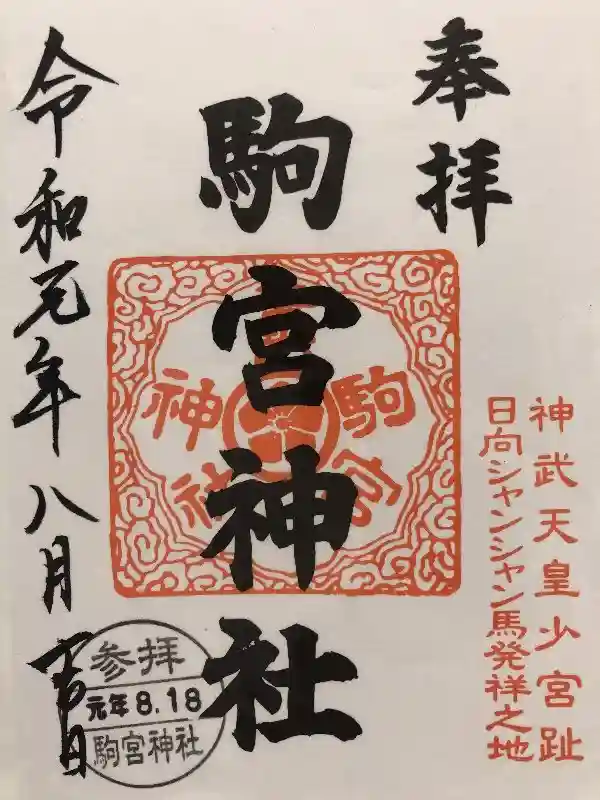 奉拝
神武天皇少宮趾
日向シャンシャン馬発祥之地
駒宮神社
駒宮
神社
令和元年八月
参拝
元年8.18
駒宮神社